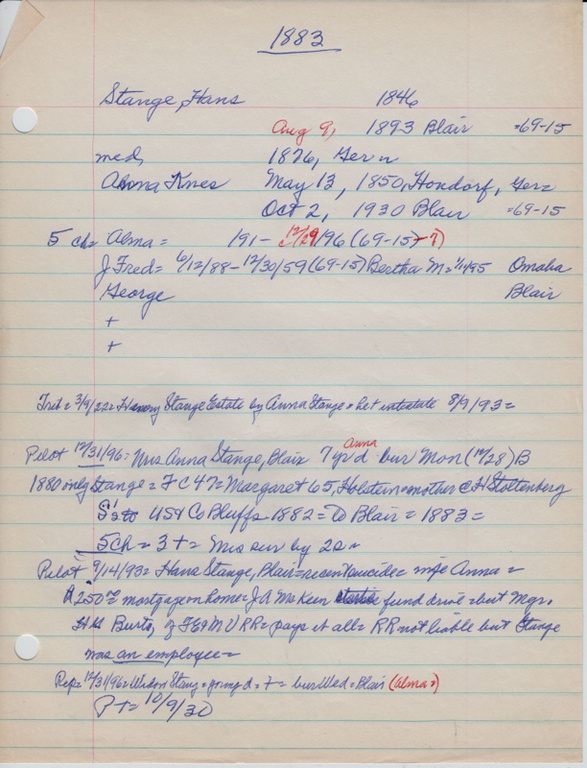 1883
Stange, Hans 1846
Aug 9, 1893 Blair =69-15
med, 1876, Ger
Anna Knes May 13, 1850, Hondorf, Ger=
Oct 2, 1930 Blair =69-15
5 ch= Alma = 191- 12/29/96 (69-15-7)
J Fred= 6/12/88-12/30/59 (69-15) Bertha M= 1/11/95 Omaha
George Blair
+
+
Trib= 3/9/22= Stange Estate by Anna Stange = het intestate 8/9/93=
Pilot 12/31/96= Mrs Anna Stange, Blair 7 yr Anna d bur Mon (12/28) B
1880 only Stange= F C 47= Margaret 65, Holstein=mother C H Stoltenberg
S's to US & Co Bluffs 1882= to Blair= 1883=
5 ch= 3 += Mrs sur by 2s=
Pilot 9/14/93= Hans Stange, Blair=recent suicide= wife Anna=
$250.00 mortgage on home= J A McKeen fund drive=but Mgr.
H G Burt, of FE & MV RR= pays it all= RR not liable but Stange
was an employee=
Rep= 12/31/96= Widow Stang= young d, += bur Wed= Blair (Alma=)
P += 10/9/30